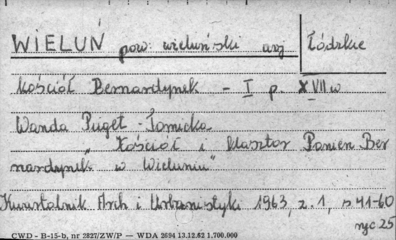 WIELUŃ pow. wieluński woj. Łódzkie
Kościół Bernardynek - I p. XVII w
Wanda Puget-Tomicka
"Kościół i klasztor Panien Ber
nardynek w Wieluniu"
Kwartalnik Arch i Urbanistyki 1963, z. 1, s 41-60
ryc 25
CWD - B-15-b, nr 2827/ZW/P — WDA 2694 13.12.62 1.700.000